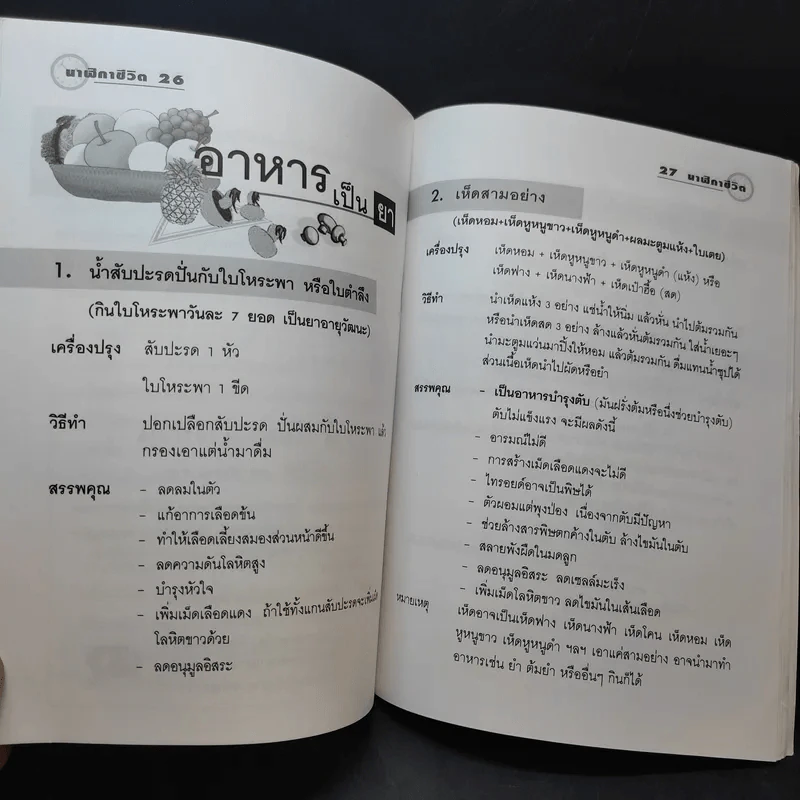 นาฬิกาชีวิต 26
อาหาร
เป็น ยา
1. น้ำสับปะรดปั่นกับใบโหระพา หรือใบตำลึง
(กินใบโหระพาวันละ 7 ยอด เป็นยาอายุวัฒนะ)
เครื่องปรุง สับปะรด 1 หัว
ใบโหระพา 1 ขีด
วิธีทำ ปอกเปลือกสับปะรด ปั่นผสมกับใบโหระพา แล้ว
กรองเอาแต่น้ำมาดื่ม
สรรพคุณ - ลดลมในตัว
- แก้อาการเลือดข้น
- ทำให้เลือดเลี้ยงสมองส่วนหน้าดีขึ้น
- ลดความดันโลหิตสูง
- บำรุงหัวใจ
- เพิ่มเม็ดเลือดแดง ถ้าใช้ทั้งแกนสับปะรดจะเพิ่ม
โลหิตขาวด้วย
- ลดอนุมูลอิสระ
27 นาฬิกาชีวิต
2. เห็ดสามอย่าง
(เห็ดหอม+เห็ดหูหนูขาว+เห็ดหูหนูดำ+ผลมะตูมแห้ง+ใบเตย)
เครื่องปรุง เห็ดหอม + เห็ดหูหนูขาว + เห็ดหูหนูดำ (แห้ง) หรือ
เห็ดฟาง + เห็ดนางฟ้า + เห็ดเป๋าฮื้อ (สด)
วิธีทำ นำเห็ดแห้ง 3 อย่าง แช่น้ำให้นิ่ม แล้วหั่น นำไปต้มรวมกัน
หรือนำเห็ดสด 3 อย่าง ล้างแล้วหั่นต้มรวมกัน ใส่น้ำเยอะๆ
นำมะตูมแว่นมาปิ้งให้หอม แล้วต้มรวมกัน ดื่มแทนน้ำซุปได้
ส่วนเนื้อเห็ดนำไปผัดหรือยำ
สรรพคุณ - เป็นอาหารบำรุงตับ (มันฝรั่งต้มหรือนึ่งช่วยบำรุงตับ)
ตับไม่แข็งแรง จะมีผลดังนี้
- อารมณ์ไม่ดี
- การสร้างเม็ดเลือดแดงจะไม่ดี
- ไทรอยด์อาจเป็นพิษได้
- ตัวผอมแต่พุงป่อง เนื่องจากตับมีปัญหา
- ช่วยล้างสารพิษตกค้างในตับ ล้างไขมันในตับ
- สลายพังผืดในมดลูก
- ลดอนุมูลอิสระ ลดเซลล์มะเร็ง
- เพิ่มเม็ดโลหิตขาว ลดไขมันในเส้นเลือด
หมายเหตุ เห็ดอาจเป็นเห็ดฟาง เห็ดนางฟ้า เห็ดโคน เห็ดหอม เห็ด
หูหนูขาว เห็ดหูหนูดำ ฯลฯ เอาแค่สามอย่าง อาจนำมาทำ
อาหารเช่น ยำ ต้มยำ หรืออื่นๆ กินก็ได้